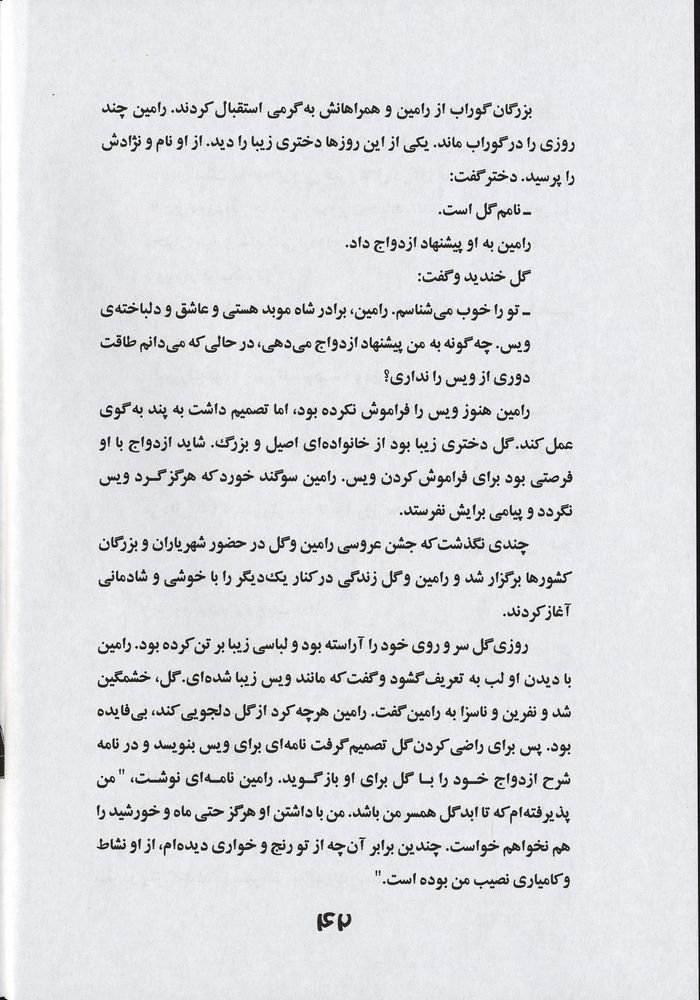 بزرگان گوراب از رامین و همراهانش به‌گرمی استقبال کردند. رامین چند
روزی را در گوراب ماند. یکی از این روزها دختری زیبا را دید. از او نام و نژادش
را پرسید. دختر گفت:
ـ نامم گل است.
رامین به او پیشنهاد ازدواج داد.
گل خندید و گفت:
ـ تو را خوب می‌شناسم. رامین، برادر شاه موبد هستی و عاشق و دلباخته‌ی
ویس. چه‌گونه به من پیشنهاد ازدواج می‌دهی، در حالی که می‌دانم طاقت
دوری از ویس را نداری؟
رامین هنوز ویس را فراموش نکرده بود، اما تصمیم داشت به پند به‌گوی
عمل کند. گل دختری زیبا بود از خانواده‌ای اصیل و بزرگ. شاید ازدواج با او
فرصتی بود برای فراموش کردن ویس. رامین سوگند خورد که هرگز گرد ویس
نگردد و پیامی برایش نفرستد.
چندی نگذشت که جشن عروسی رامین و گل در حضور شهریاران و بزرگان
کشورها برگزار شد و رامین و گل زندگی در کنار یک‌دیگر را با خوشی و شادمانی
آغاز کردند.
روزی گل سر و روی خود را آراسته بود و لباسی زیبا بر تن کرده بود. رامین
با دیدن او لب به تعریف گشود و گفت که مانند ویس زیبا شده‌ای. گل، خشمگین
شد و نفرین و ناسزا به رامین گفت. رامین هرچه کرد از گل دلجویی کند، بی‌فایده
بود. پس برای راضی کردن گل تصمیم گرفت نامه‌ای برای ویس بنویسد و در نامه
شرح ازدواج خود را با گل برای او بازگوید. رامین نامه‌ای نوشت، "من
پذیرفته‌ام که تا ابد گل همسر من باشد. من با داشتن او هرگز حتی ماه و خورشید را
هم نخواهم خواست. چندین برابر آن‌چه از تو رنج و خواری دیده‌ام، از او نشاط
و کامیاری نصیب من بوده است."
۴۲